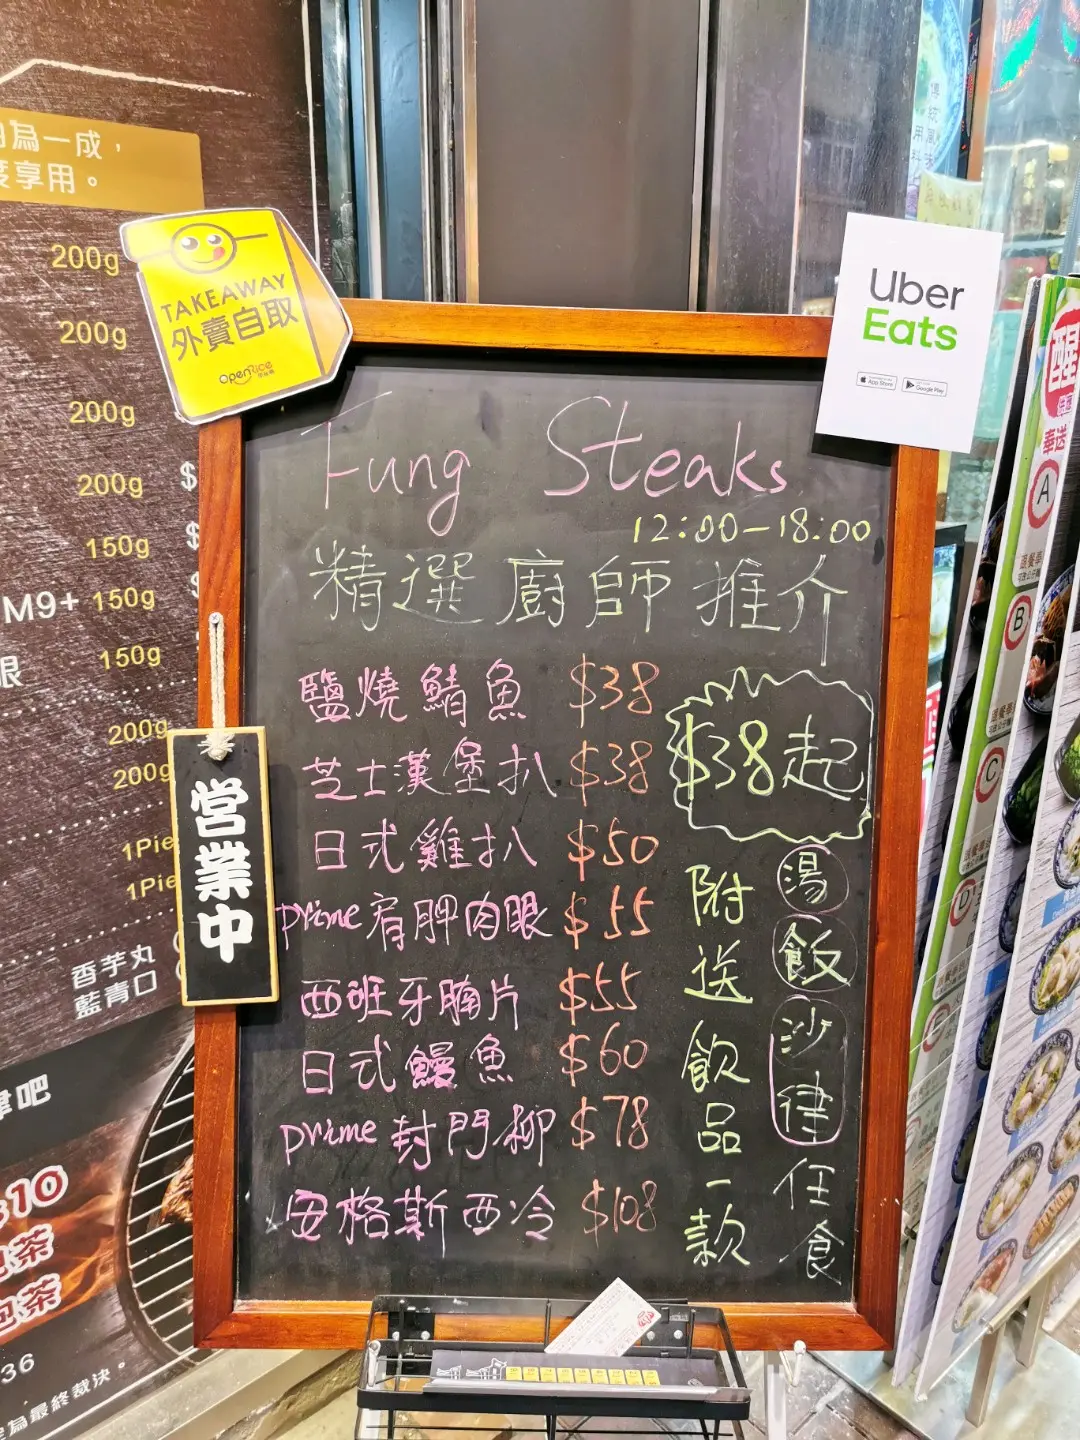 為一成，
享用。
200g
200g
200g
200g $
150g $
M9+ 150g
眼 150g
200g
200g
香芋丸
藍青口
吧
10
茶
茶
36
為最終裁決。
TAKEAWAY
外賣自取
OpenRice
営業中
Uber
Eats
App Store
Google Play
Fung Steaks
12:00-18:00
精選廚師推介
鹽燒鯖魚 $38
芝士漢堡扒 $38
日式雞扒 $50
prime肩胛肉眼 $55
西班牙腩片 $55
日式鰻魚 $60
prime封門柳 $78
安格斯西冷 $108
$38起
湯飯沙律任食
附送飲品一款
醒
A
B
C
D